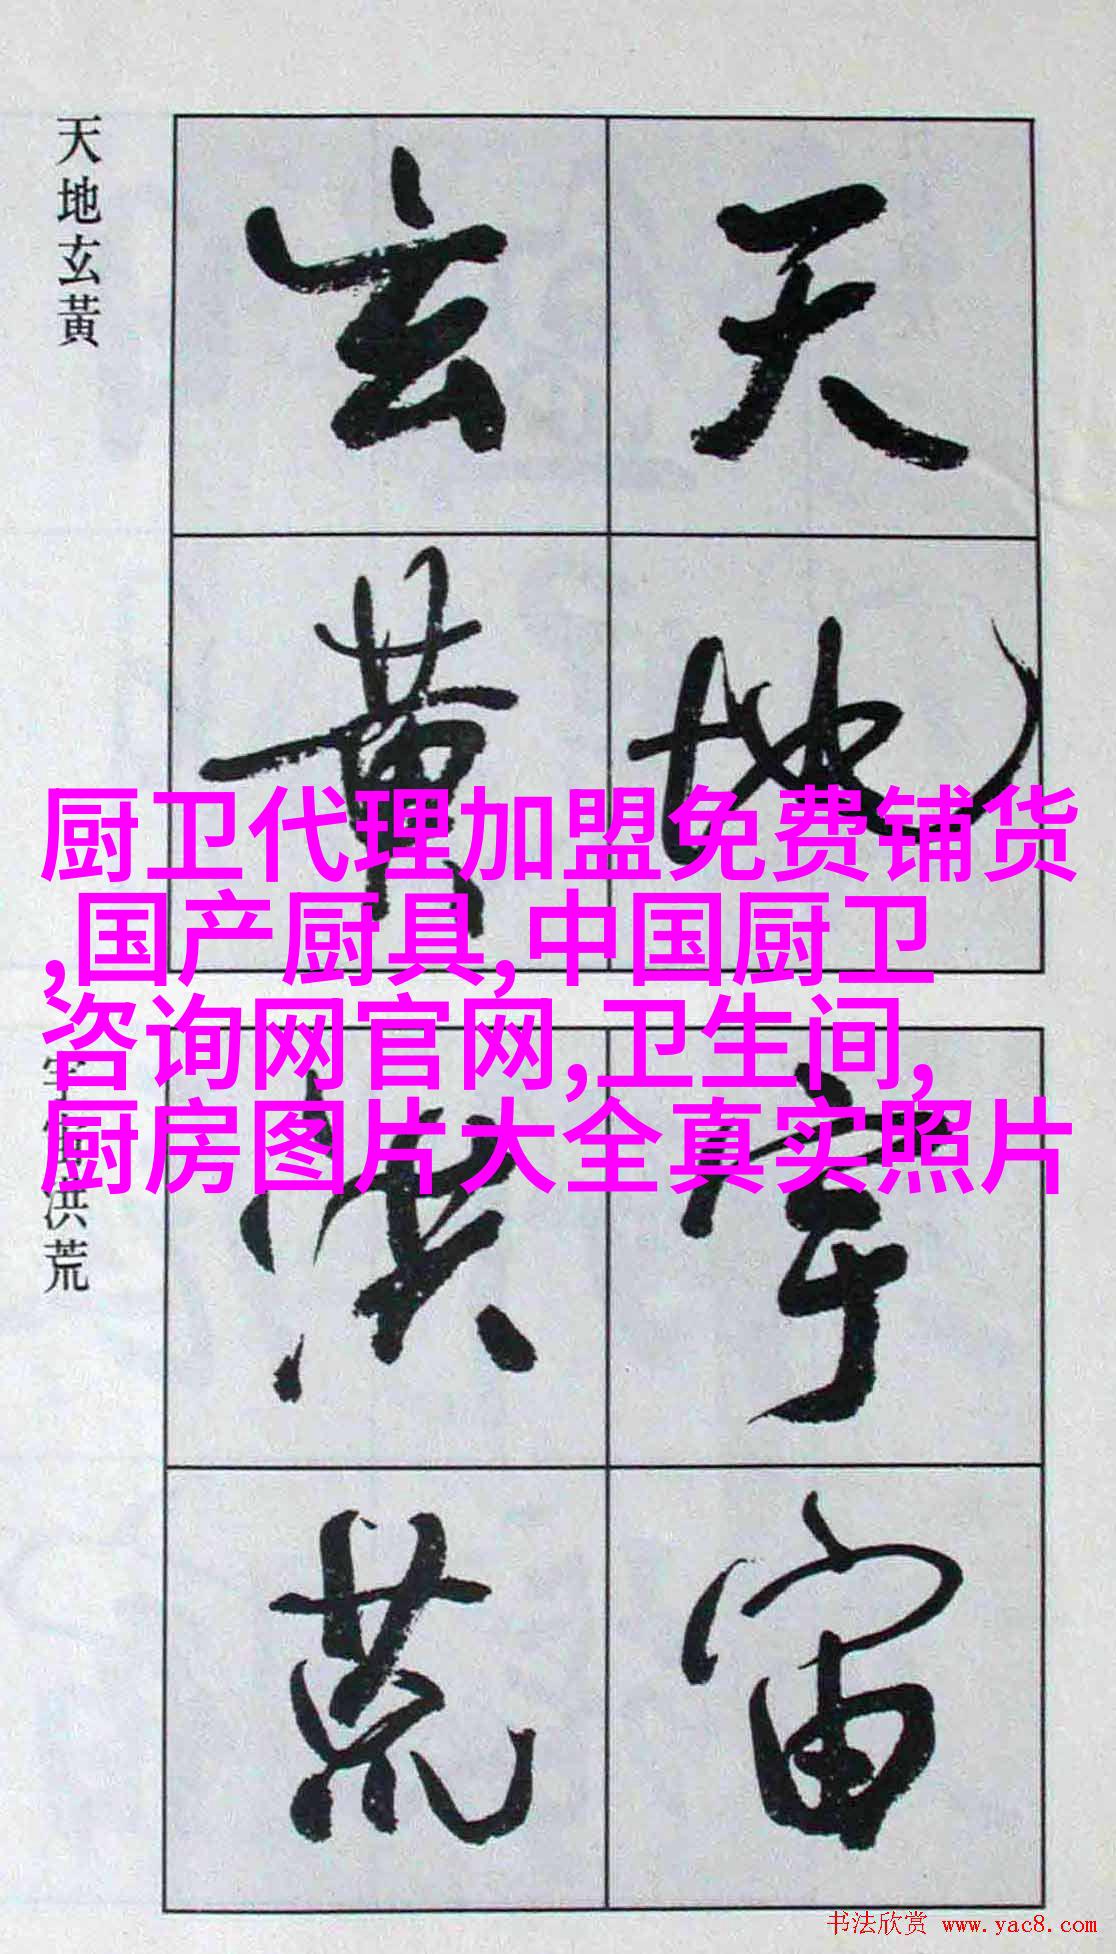 天地玄黃
天地
玄黄
厨卫代理加盟免费铺货
,国产厨具,中国厨卫
咨询网官网,卫生间,
厨房图片大全真实照片
宇宙洪荒
宇宙
洪荒
书法欣赏 www.yac8.com